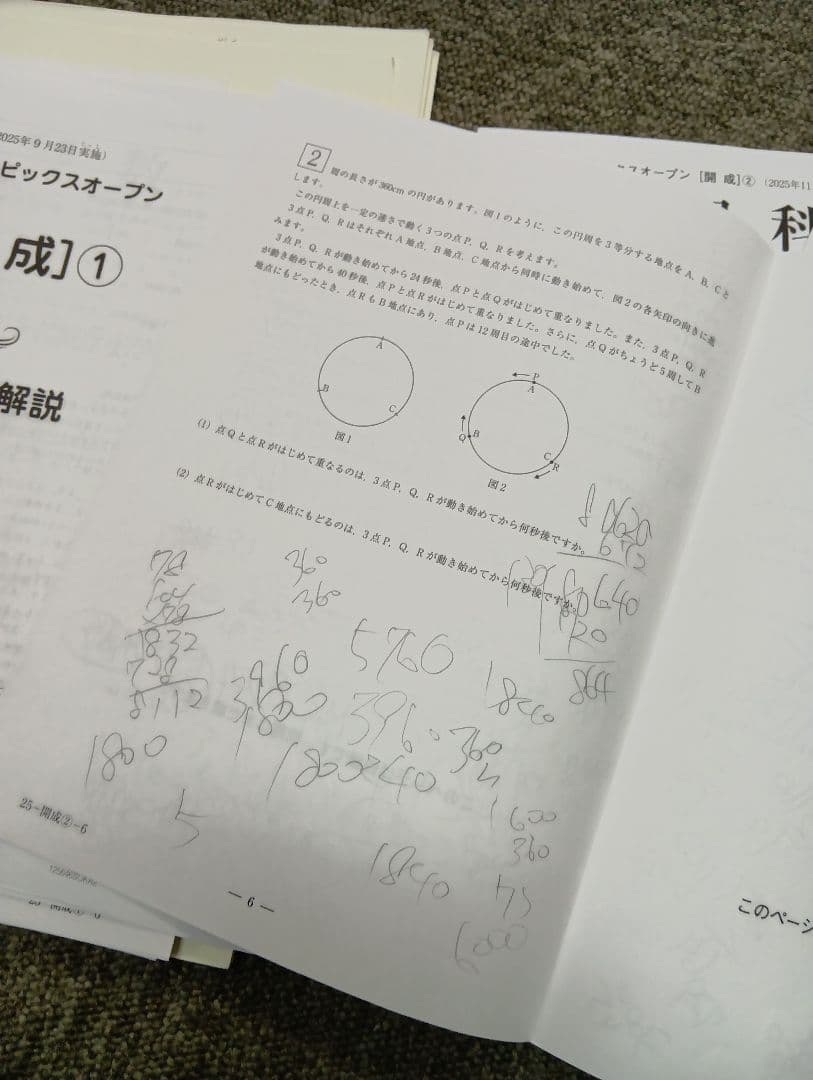 2025年9月23日実施)
ピックスオープン
成]①
解説
オープン [開成]② (2025年11
2 周の長さが360cmの円があります。図1のように、この円周を3等分する地点をA、B、Cと
します。
この円周上を一定の速さで動く3つの点P、Q、Rを考えます。
3点P、Q、RはそれぞれA地点、B地点、C地点から同時に動き始めて、図2の各矢印の向きに進
みます。
3点P、Q、Rが動き始めてから24秒後、点Pと点Qがはじめて重なりました。また、3点P、Q、R
が動き始めてから40秒後、点Pと点Rがはじめて重なりました。さらに、点Qがちょうど5周してB
地点にもどったとき、点RもB地点にあり、点Pは12周目の途中でした。
A
B
C
図1
P
A
Q B
C
R
図2
(1) 点Qと点Rがはじめて重なるのは、3点P、Q、Rが動き始めてから何秒後ですか。
(2) 点RがはじめてC地点にもどるのは、3点P、Q、Rが動き始めてから何秒後ですか。
360
360
1832
728
8112
960
1800
5760
396
360
1800
1800
40
5
640
120
864
1840
1600
360
1840
75
6000
25-開成②-6
— 6 —
このページ